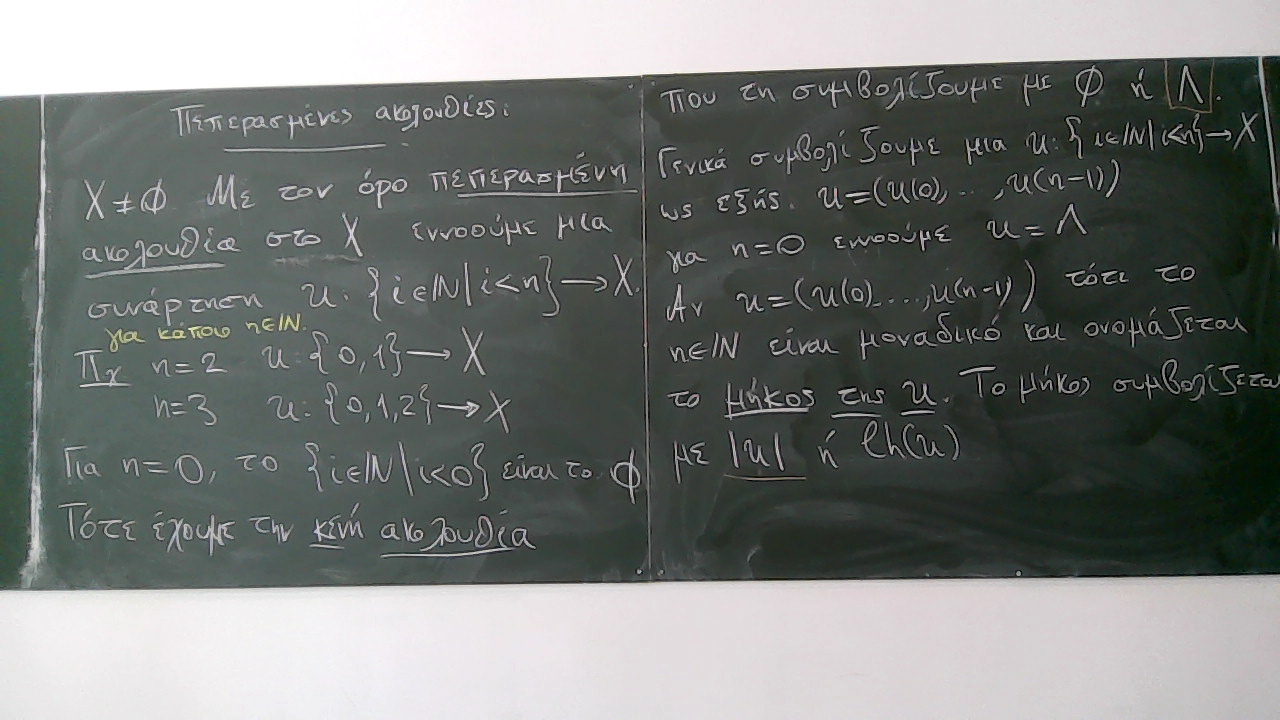 Πεπερασμένες ακολουθίες:
X ≠ ∅ Με τον όρο πεπερασμένη
ακολουθία στο X εννοούμε μια
συνάρτηση u: {i∈ℕ | i<n} → X.
για κάποιο n∈ℕ.
Πχ n=2 u: {0,1} → X
n=3 u: {0,1,2} → X
Για n=0, το {i∈ℕ | i<0} είναι το ∅
Τότε έχουμε την κενή ακολουθία
που τη συμβολίζουμε με ∅ ή Λ.
Γενικά συμβολίζουμε μια u: {i∈ℕ | i<n} → X
ως εξής. u=(u(0),..,u(n-1))
για n=0 εννοούμε u=Λ
Αν u=(u(0)...,u(n-1)) τότε το
n∈ℕ είναι μοναδικό και ονομάζεται
το μήκος της u. Το μήκος συμβολίζεται
με |u| ή lh(u)